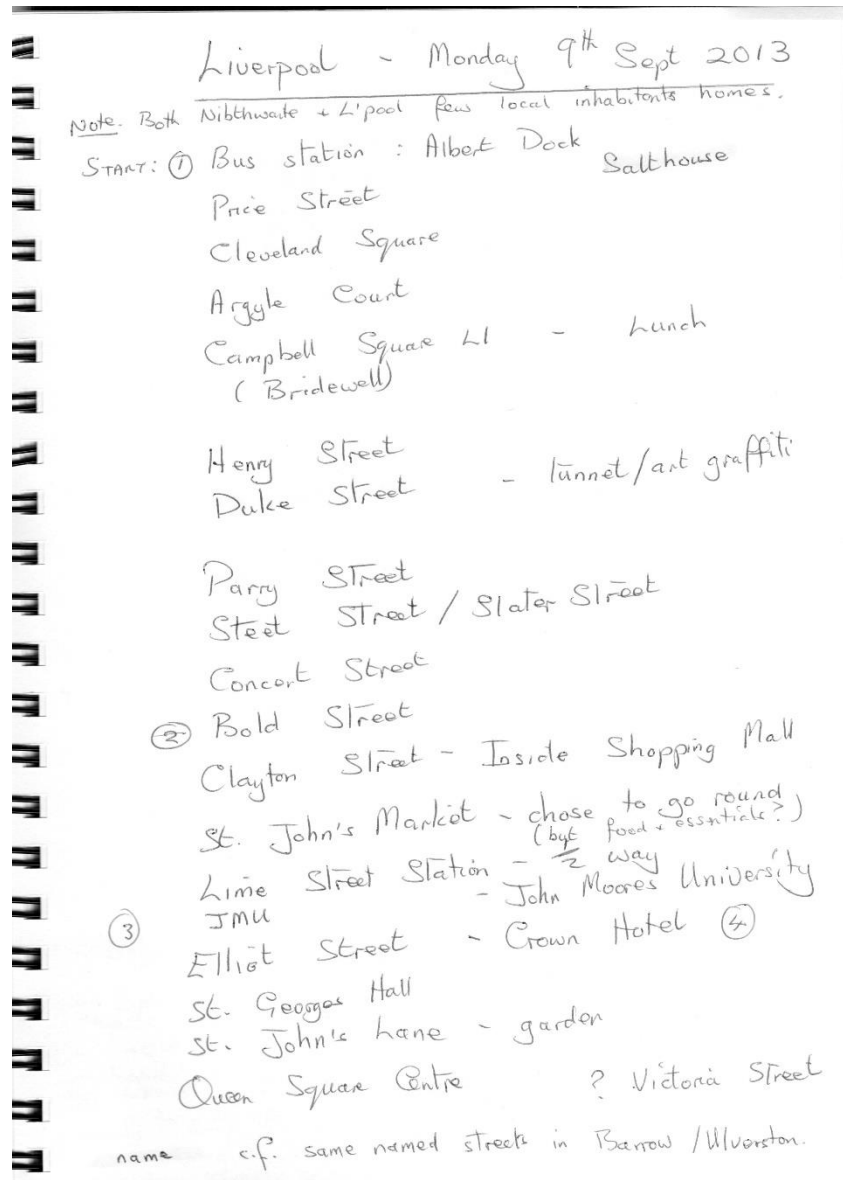 Liverpool - Monday 9th Sept 2013
Note. Both Nibthwaite + L'pool few local inhabitants homes.
START: ① Bus station : Albert Dock
Salthouse
Price Street
Cleveland Square
Argyle Court
Campbell Square L1 - Lunch
(Bridewell)
Henry Street
Duke Street - tunnel/art graffiti
Parry Street
Steet Street / Slater Street
Concert Street
② Bold Street
Clayton Street - Inside Shopping Mall
St. John's Market - chose to go round
(byt food + essntials?)
Lime Street Station - ½ way
JMU - John Moores University
③
Elliot Street - Crown Hotel ④
St. Georges Hall
St. John's Lane - garden
Queen Square Centre ? Victoria Street
name c.f. same named streets in Barrow / Ulverston.